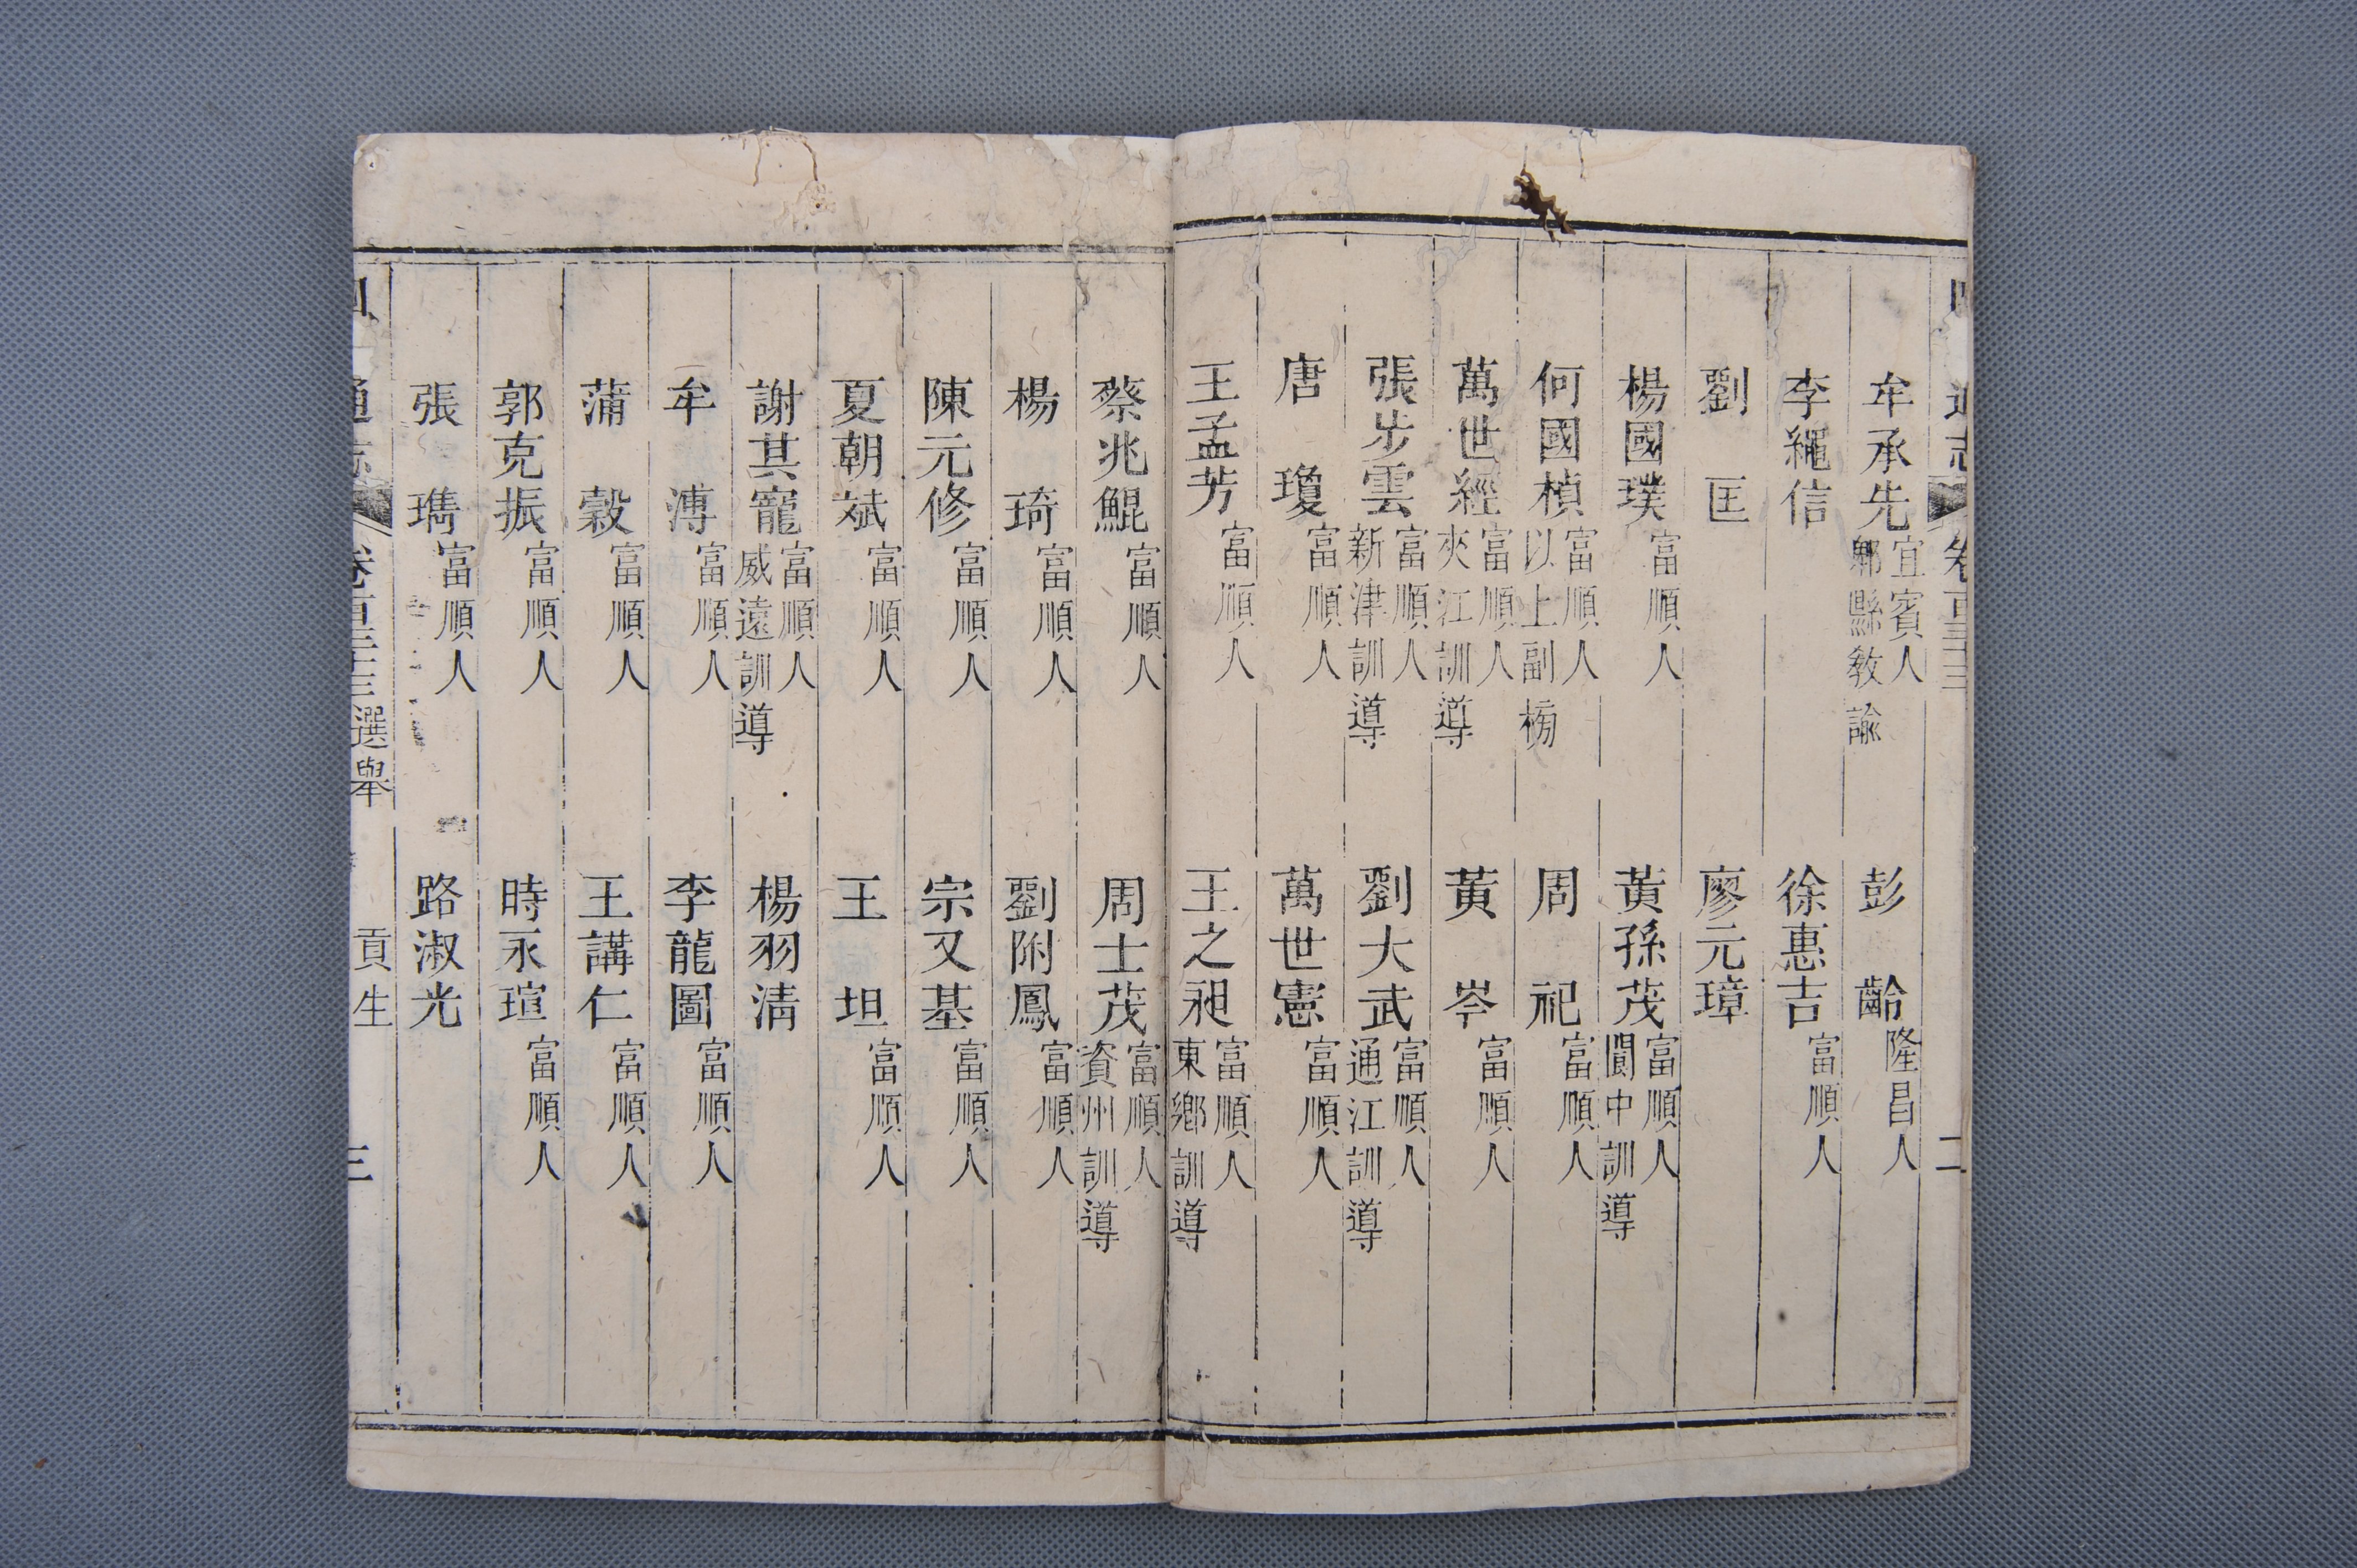 通志 卷百三十三 二
牟承先 宜賓人 郫縣教諭 彭齡 隆昌人
李繩信 徐惠吉 富順人
劉匡 廖元璋
楊國璞 富順人 黃孫茂 富順人 閬中訓導
何國楨 富順人 以上副榜 周祀 富順人
萬世經 富順人 夾江訓導 黃岑 富順人
張步雲 富順人 新津訓導 劉大武 富順人 通江訓導
唐瓊 富順人 萬世憲 富順人
王孟芳 富順人 王之昶 富順人 東鄉訓導
蔡兆鯤 富順人 周士茂 富順人 資州訓導
楊琦 富順人 劉附鳳 富順人
陳元修 富順人 宗又基 富順人
夏朝斌 富順人 王坦 富順人
謝其寵 富順人 威遠訓導 楊羽清
牟溥 富順人 李龍圖 富順人
蒲穀 富順人 王講仁 富順人
郭克振 富順人 時永瑄 富順人
張瓗 富順人 路淑光
通志 卷百三十三 選舉 貢生 三